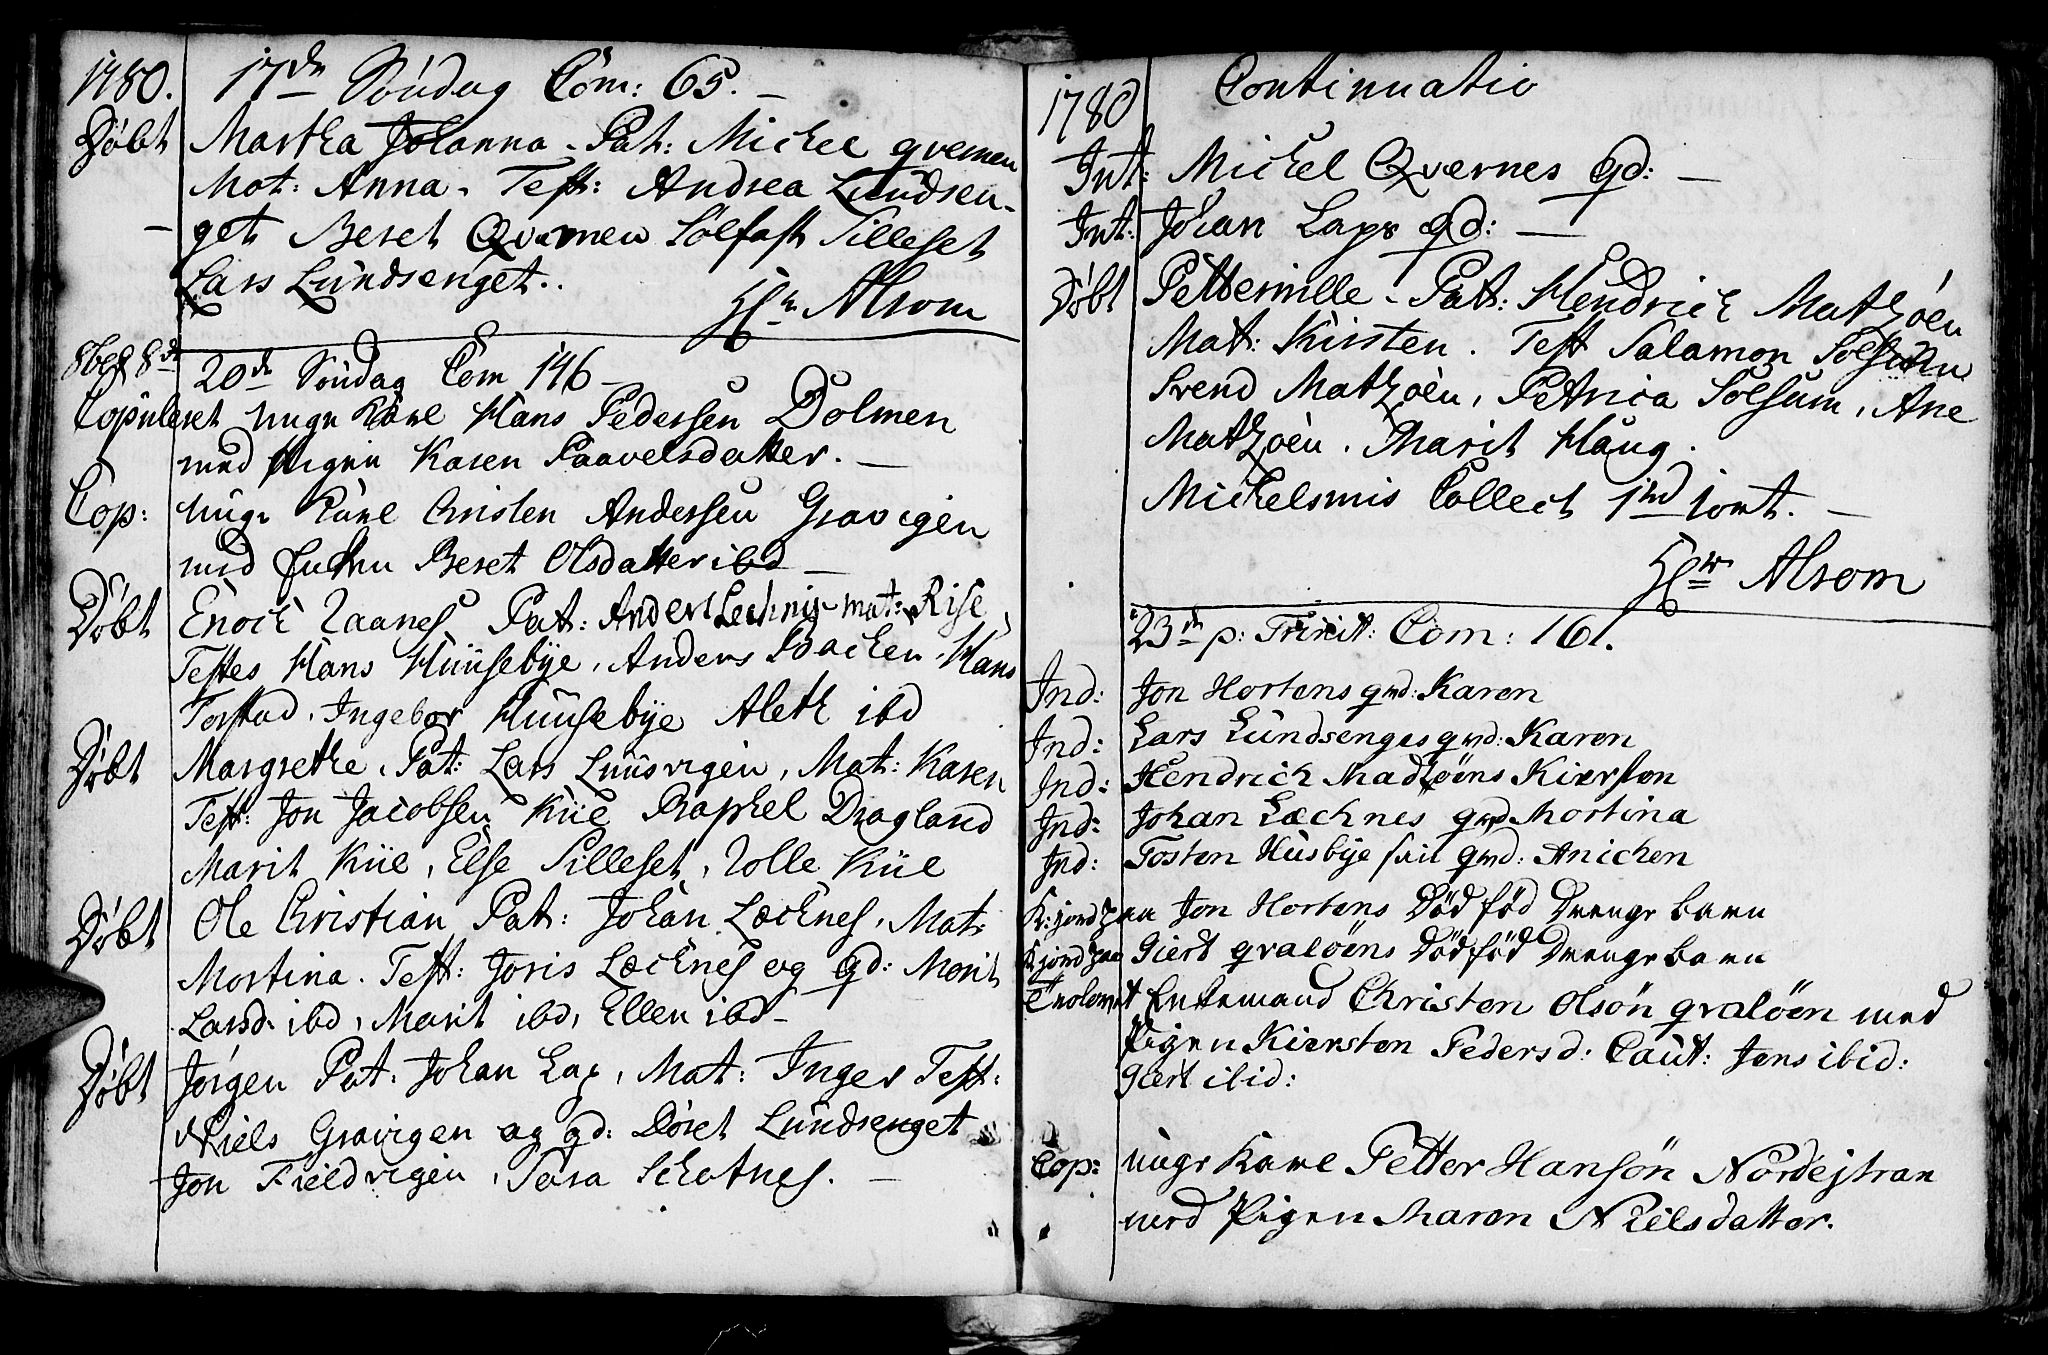 1780. 17de Söndag Com: 65. –
Döbt Martha Johanna. Pat: Michel qvernen
Mat: Anna. Test: Andrea Lundsen-
– get Beret Qvernen Solfast Silleset
Lars Lundsenget..
Hr Alsom
8br 8de 20de Söndag Com 146 –
Copuleret unge Karl Hans Pedersen Dolmen
med Pigen Karen Paavelsdatter. –
Cop: unge Karl Christen Andersen Gravigen
med Enken Beret Olsdatter ibd –
Döbt Enoch Zaanes Pat: Anders Lechnis mat: Rise
Testes Hans Huusebÿe, Anders Backen, Hans
Forstad, Ingebor Huusebÿe Aleth ibd
Döbt Margrethe, Pat: Lars Luusvigen, Mat: Karen
Test: Jon Jacobsen Küe Raphel Dragland
Marit Küe, Else Silleset, Zolle Küe
Döbt Ole Christian Pat: Johan Lœchnes, Mat:
Mortina. Test: Joris Lœchnes og qd: Marit
Larsd. ibd, Marit ibd, Ellen ibd –
Döbt Jörgen Pat: Johan Lap, Mat: Inger Test:
Niels Gravigen og qd: Döret Lundsenget
Jon Fieldvigen, Sara Schatnes. –
1780 Continuatio
Int: Michel Qvernes qd: –
Int: Johan Laps qd: –
Döbt Petternille. Pat: Hendrich Matzöen
Mat: Kirsten. Test Salamon Solsum
Svend Matzöen, Petrica Solsum, Ane
Matzöen. Marit Haug.
Michelsmis Collect 1rd 1ort. –
Hr Alsom
23de p: Trinit: Com: 161.
Ind: Jon Hortens qvd: Karen
Ind: Lars Lundsenges qvd: Karen
Ind: Hendrich Madzöens Kiersten
Ind: Johan Lœchnes qvd Mortina
Ind: Tosten Husbÿe qvd: Anichen
K: jord paa Jon Hortens Död föd Drenge barn
K jord paa Giert qvalöens Död föd Drenge barn
Trolovet Enkemand Christen Olsön qvalöen med
Pigen Kiersten Pedersd: Caut: Jens ibid:
Giert ibid:
Cop: unge Karl Petter Hansön Nordejtran
med Pigen Maren Nielsdatter.